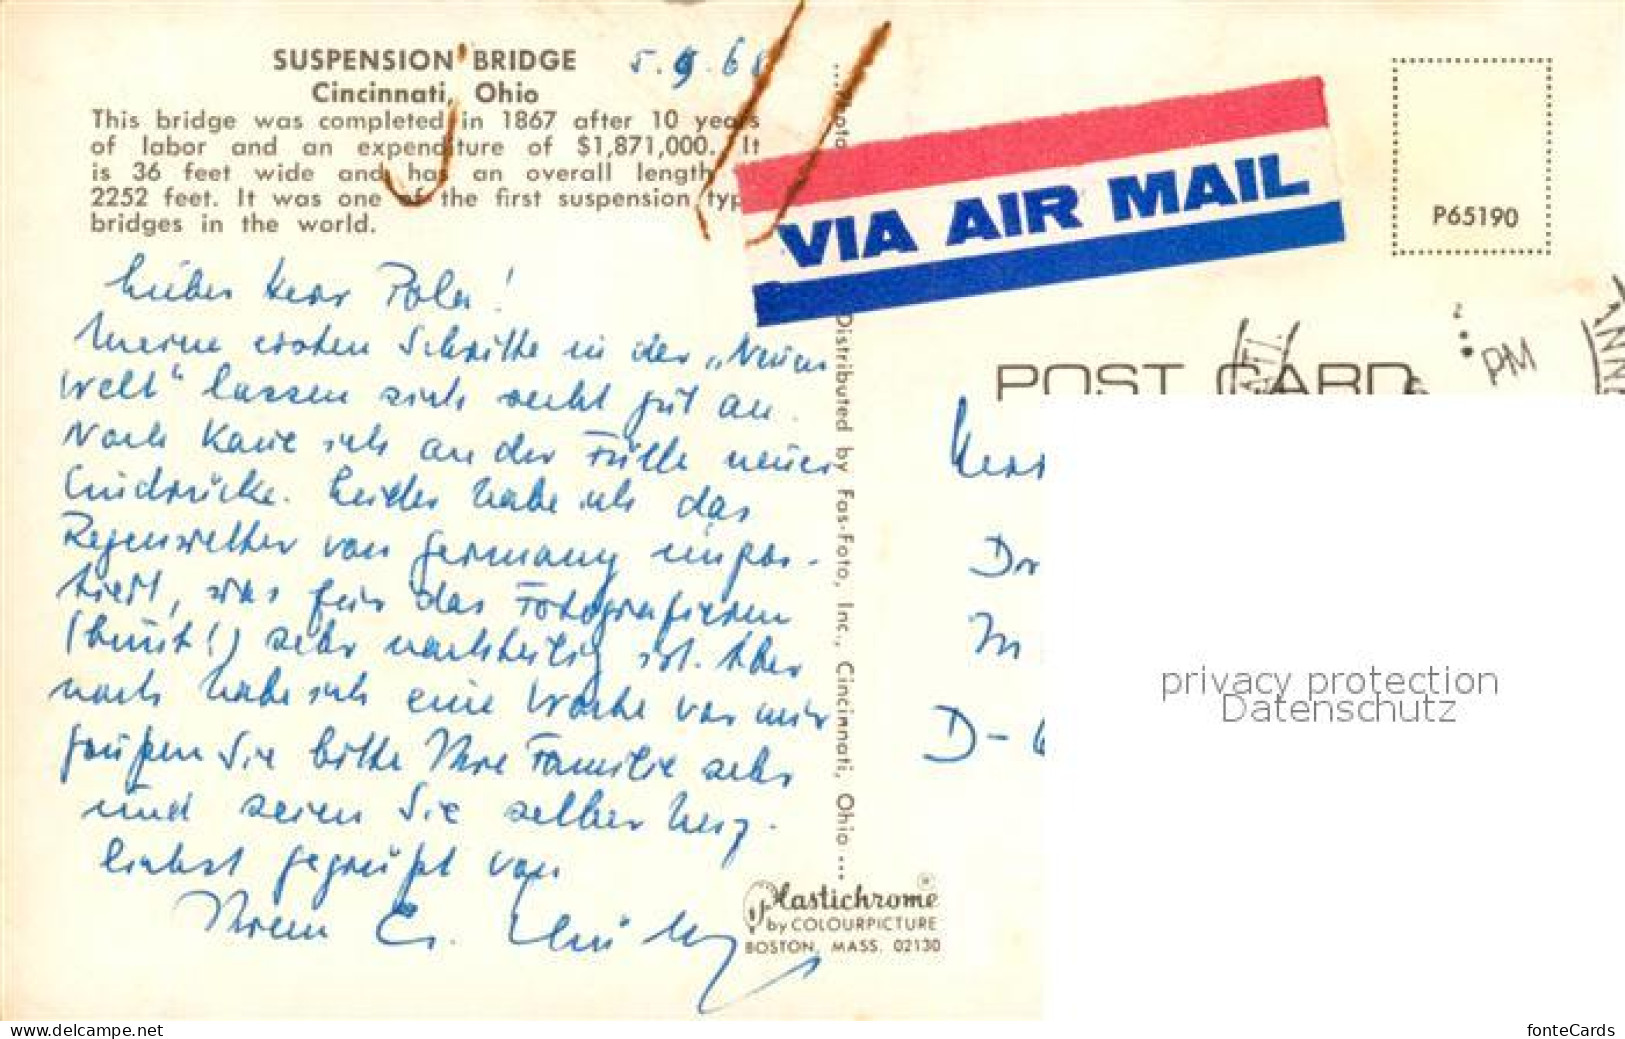 SUSPENSION BRIDGE
Cincinnati, Ohio
This bridge was completed in 1867 after 10 years
of labor and an expenditure of $1,871,000. It
is 36 feet wide and has an overall length
2252 feet. It was one of the first suspension type
bridges in the world.
5.9.68
Lieber Herr Poler!
Meine ersten Schritte in der „Neuen
Welt“ lassen sich recht gut an.
Noch kaue ich an der Fülle neuer
Eindrücke. Leider habe ich das
Regenwetter von Germany impor-
tiert, was für das Fotografieren
(bunt!) sehr nachteilig ist. Aber
noch habe ich eine Woche vor mir
grüßen Sie bitte Ihre Familie sehr
und seien Sie selber herz-
lichst gegrüßt von
Ihrem
Distributed by Fas-Foto, Inc., Cincinnati, Ohio ...
Plastichrome ®
by COLOURPICTURE
BOSTON, MASS. 02130
VIA AIR MAIL
P65190
PM
POST CARD
Herr
D-6
privacy protection
Datenschutz
www.delcampe.net
fonteCards